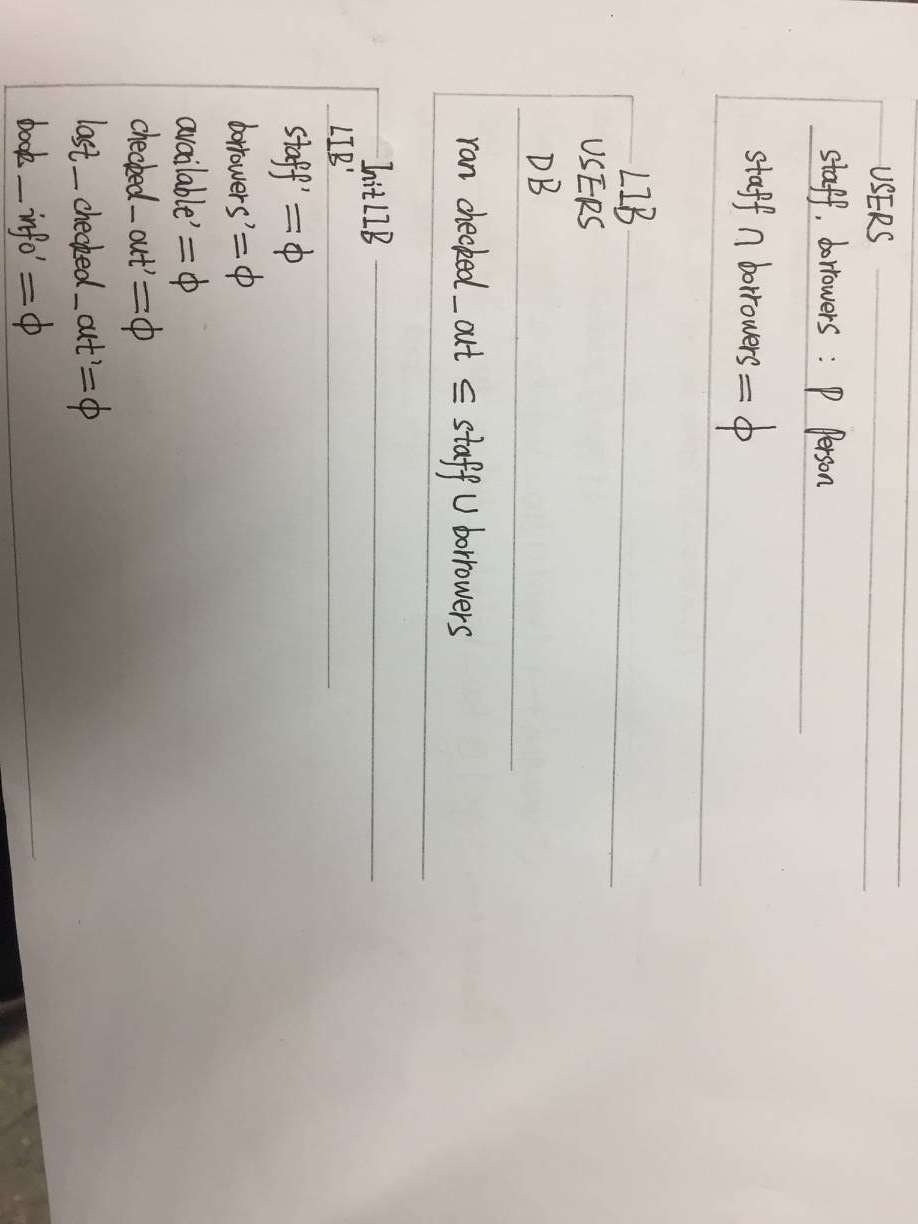 USERS
staff, borrowers : P Person
staff ∩ borrowers = ϕ
LIB
USERS
DB
ran checked_out ⊆ staff ∪ borrowers
InitLIB
LIB'
staff' = ϕ
borrowers' = ϕ
available' = ϕ
checked_out' = ϕ
last_checked_out' = ϕ
book_info' = ϕ